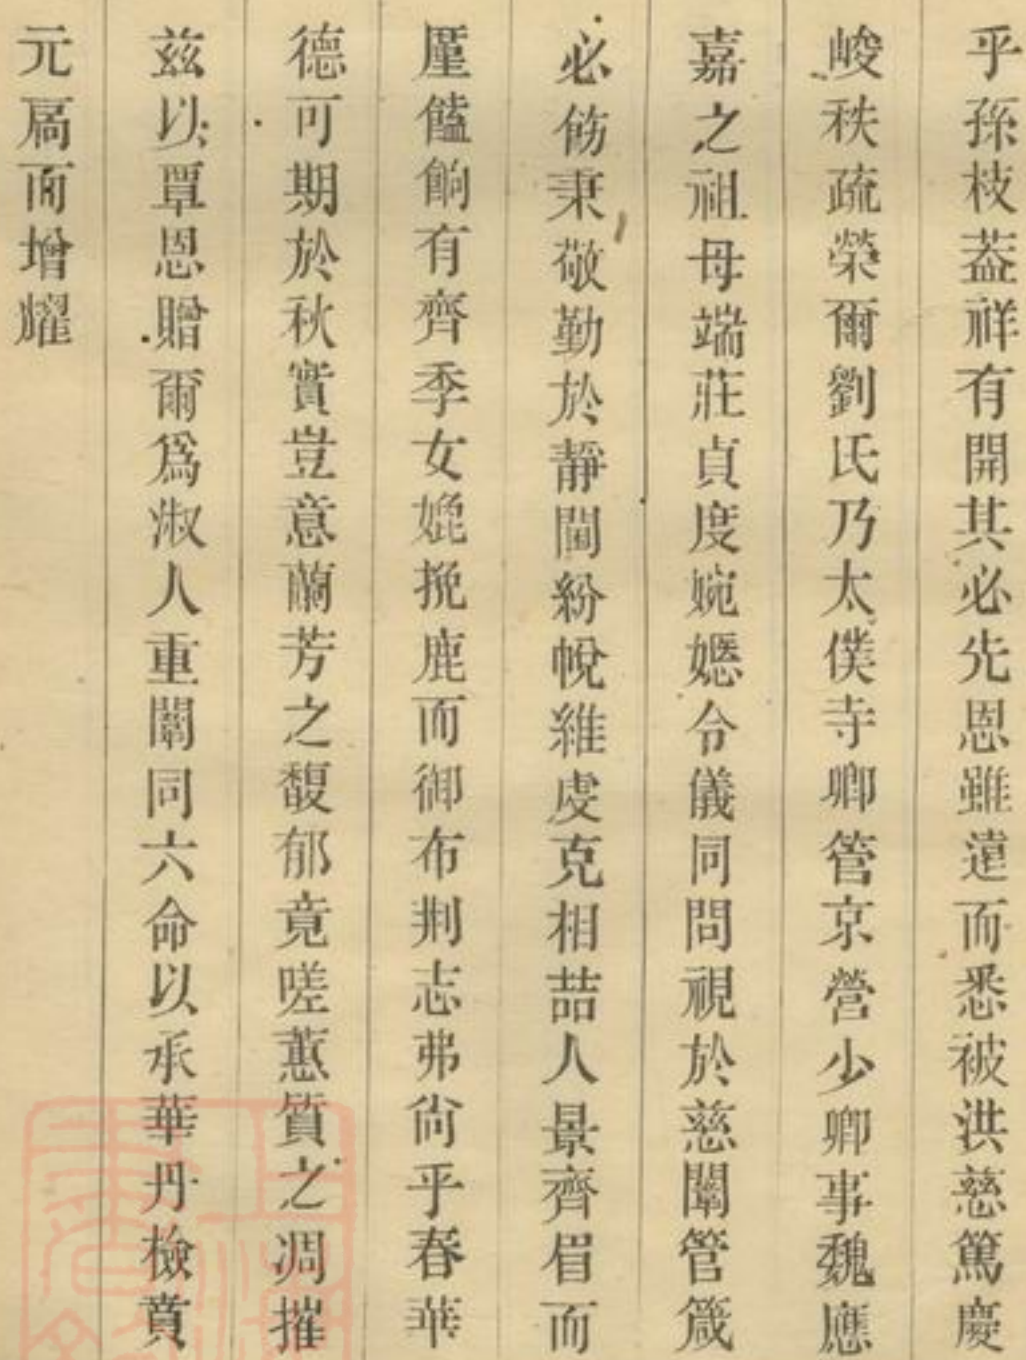 乎孫枝葢祥有開其必先恩雖遠而悉被洪慈篤慶
峻秩疏榮爾劉氏乃太僕寺卿管京營少卿事魏應
嘉之祖母端莊貞度婉嫕令儀同問視於慈闈管箴
必飭秉敬勤於靜閫紛帨維虔克相喆人景齊眉而
廑饁餉有齊季女娩挽鹿而御布荆志弗尚乎春華
德可期於秋實豈意蘭芳之馥郁竟嗟蕙質之凋摧
兹以覃恩贈爾爲淑人重闈同六命以承華丹檢賁
元扃而增耀